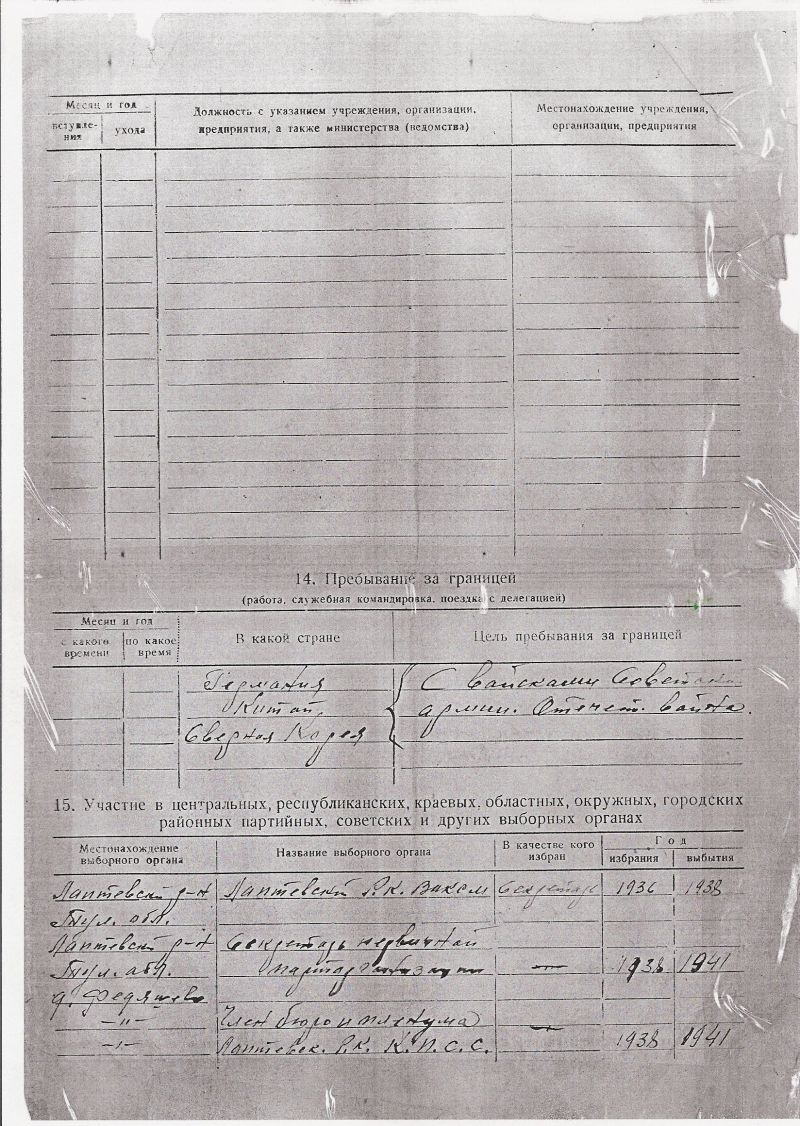 Месяц и год
вступле-
ния
ухода
Должность с указанием учреждения, организации,
предприятия, а также министерства (ведомства)
Местонахождение учреждения,
организации, предприятия
14. Пребывание за границей
(работа, служебная командировка, поездка с делегацией)
Месяц и год
с какого
времени
по какое
время
В какой стране
Цель пребывания за границей
Германия
С войсками Советской
Китай,
армии. Отечест. война.
Северная Корея
15. Участие в центральных, республиканских, краевых, областных, окружных, городских
районных партийных, советских и других выборных органах
Местонахождение
выборного органа
Название выборного органа
В качестве кого
избран
Год
избрания
выбытия
Лаптевский р-н Лаптевский Р.К. Влксм Секретарь 1936 1938
Тул. обл.
Лаптевский р-н Секретарь первичной
Тул. обл. парторганизации — 1938 1941
д. Федяшево
—"— Член бюро и пленума —
—"— Лаптевск. Р.К. К.П.С.С. 1938 1941